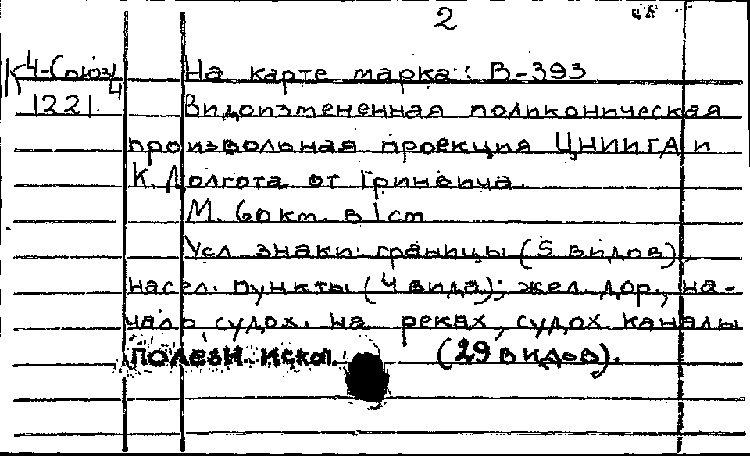 2
К 4-Союз/4
1221
На карте марка: В-393
Видоизмененная поликоническая
произвольная проекция ЦНИИГА и
К. Долгота от Гринвича
М. 60 км. в 1 см
Усл. знаки: границы (5 видов),
насел. пункты (4 вида); жел. дор., на-
чало судох. на реках, судох. каналы
полезн. ископ. (29 видов).